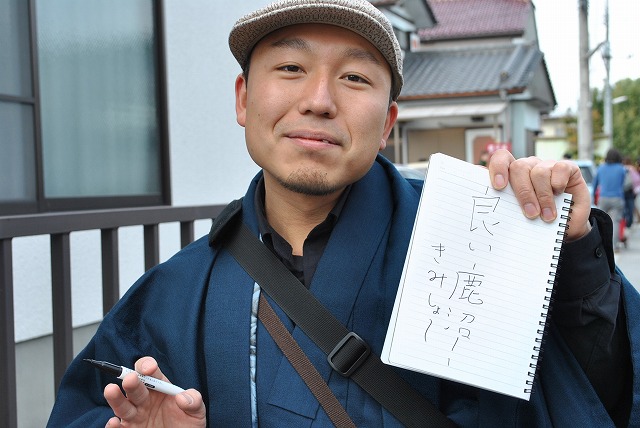 良い鹿沼
きみしょー